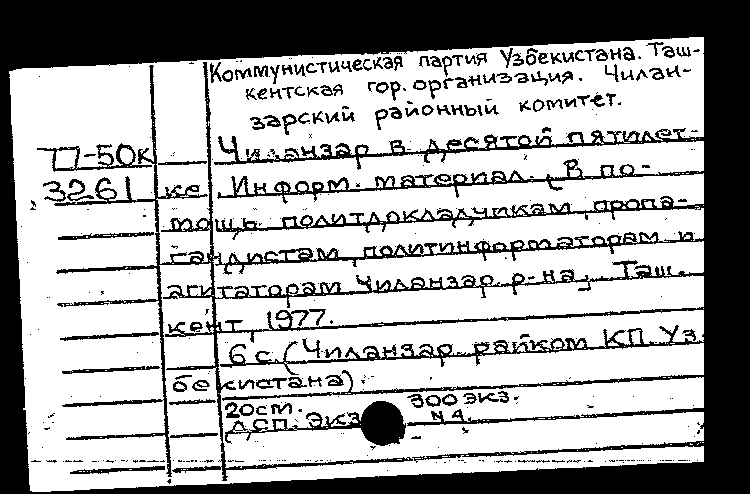 Коммунистическая партия Узбекистана. Таш-
кентская гор. организация. Чилан-
зарский районный комитет.
77-50к Чиланзар в десятой пятилет-
3261 ке. Информ. материал. (В по-
мощь политдокладчикам, пропа-
гандистам, политинформаторам и
агитаторам Чиланзар. р-на). Таш.
кент, 1977.
6 с. (Чиланзар. райком КП. Уз.
бекистана).
20 cm. 300 экз.
ДСП. Экз N 4.